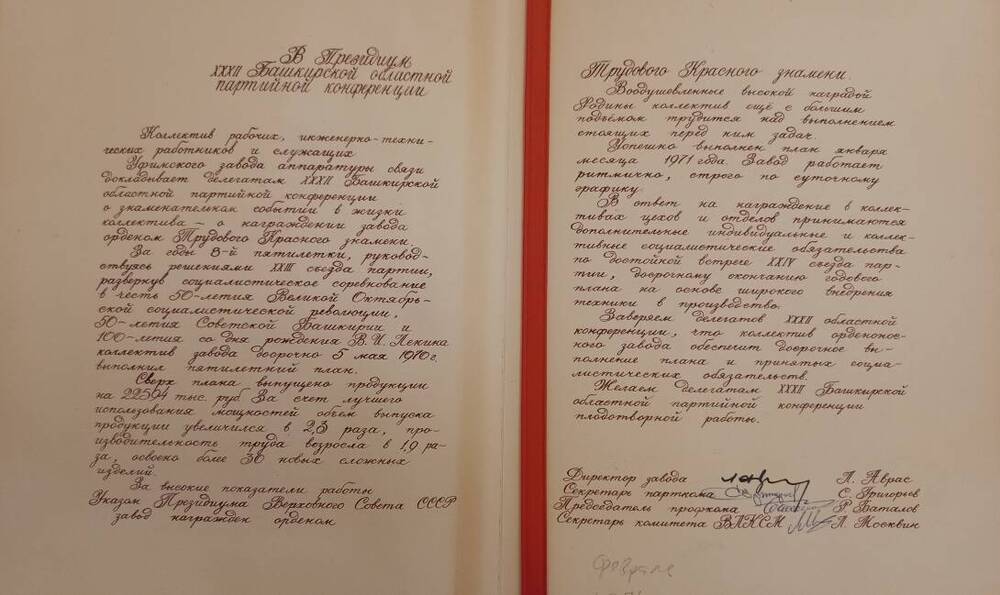 В Президиум
XXXII Башкирской областной
партийной конференции
Коллектив рабочих, инженерно-техни-
ческих работников и служащих
Уфимского завода аппаратуры связи
докладывает делегатам XXXII Башкирской
областной партийной конференции
о знаменательном событии в жизни
коллектива — о награждении завода
орденом Трудового Красного знамени.
За годы 8-й пятилетки, руковод-
ствуясь решениями XXIII съезда партии,
развернув социалистическое соревнование
в честь 50-летия Великой Октябрь-
ской социалистической революции,
50-летия Советской Башкирии и
100-летия со дня рождения В.И. Ленина
коллектив завода досрочно 5 мая 1970г.
выполнил пятилетний план.
Сверх плана выпущено продукции
на 22594 тыс. руб. За счет лучшего
использования мощностей объем выпуска
продукции увеличился в 2,3 раза, про-
изводительность труда возросла в 1,9 ра-
за, освоено более 30 новых сложных
изделий.
За высокие показатели работы
Указом Президиума Верховного Совета СССР
завод награжден орденом
Трудового Красного знамени.
Воодушевленные высокой наградой
Родины коллектив ещё с большим
подъёмом трудится над выполнением
стоящих перед ним задач.
Успешно выполнен план января
месяца 1971 года. Завод работает
ритмично, строго по суточному
графику.
В ответ на награждение в коллек-
тивах цехов и отделов принимаются
дополнительные индивидуальные и коллек-
тивные социалистические обязательства
по достойной встрече XXIV съезда пар-
тии, досрочному окончанию годового
плана на основе широкого внедрения
техники в производство.
Заверяем делегатов XXXII областной
конференции, что коллектив орденонос-
ного завода обеспечит досрочное вы-
полнение плана и принятых социа-
листических обязательств.
Желаем делегатам XXXII Башкирской
областной партийной конференции
плодотворной работы.
Директор завода Л. Аврас
Секретарь парткома С. Григорьев
Председатель профкома Р. Ваталов
Секретарь комитета ВЛКСМ Л. Москвин